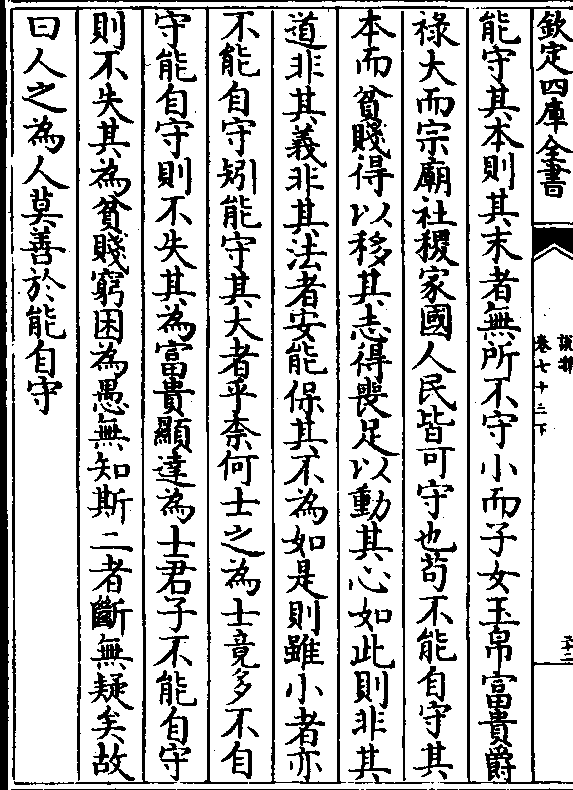 欽定四庫全書
說郛
卷七十三下
能守其本則其末者無所不守小而子女玉帛富貴爵
祿大而宗廟社稷家國人民皆可守也苟不能自守其
本而貧賤得以移其志得喪足以動其心如此則非其
道非其義非其法者安能保其不為如是則雖小者亦
不能自守矧能守其大者乎柰何士之為士竟多不自
守能自守則不失其為富貴顯達為士君子不能自守
則不失其為貧賤窮困為愚無知斯二者斷無疑矣故
曰人之為人莫善於能自守